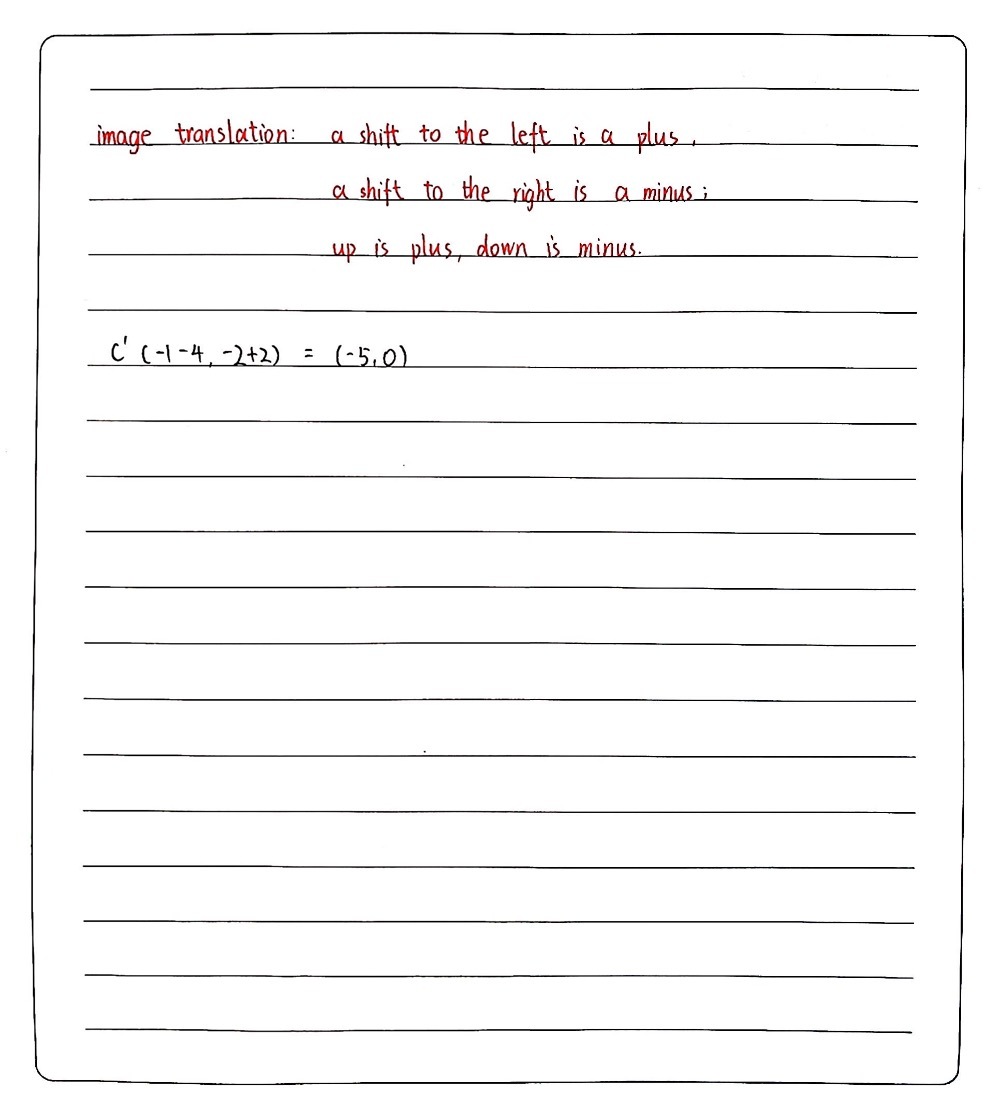 image translation: a shift to the left is a plus,
a shift to the right is a minus;
up is plus, down is minus.
C' (-1-4, -2+2) = (-5,0)